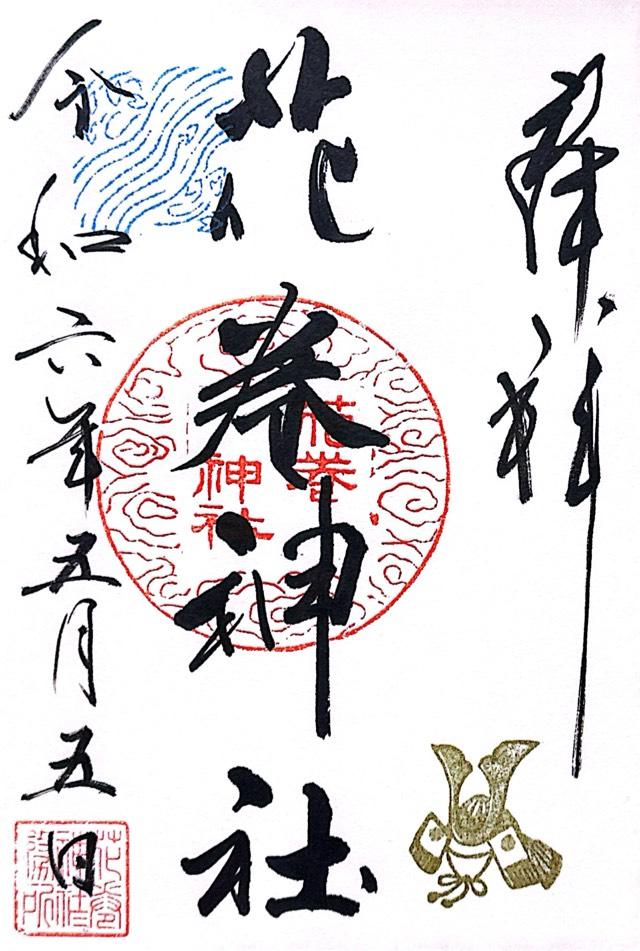 奉拝
花巻神社
花巻
神社
令和六年五月五日
花巻
神社
社務所